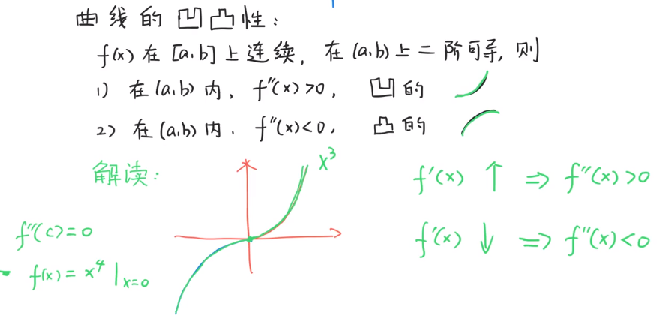 曲线的凹凸性:
f(x) 在 [a,b] 上连续, 在 (a,b) 上二阶可导, 则
1) 在 (a,b) 内, f''(x)>0, 凹的
2) 在 (a,b) 内, f''(x)<0, 凸的
解读:
x³
f'(x) ↑ ⇒ f''(x)>0
f''(c)=0
f'(x) ↓ ⇒ f''(x)<0
f(x) = x⁴ |x=0